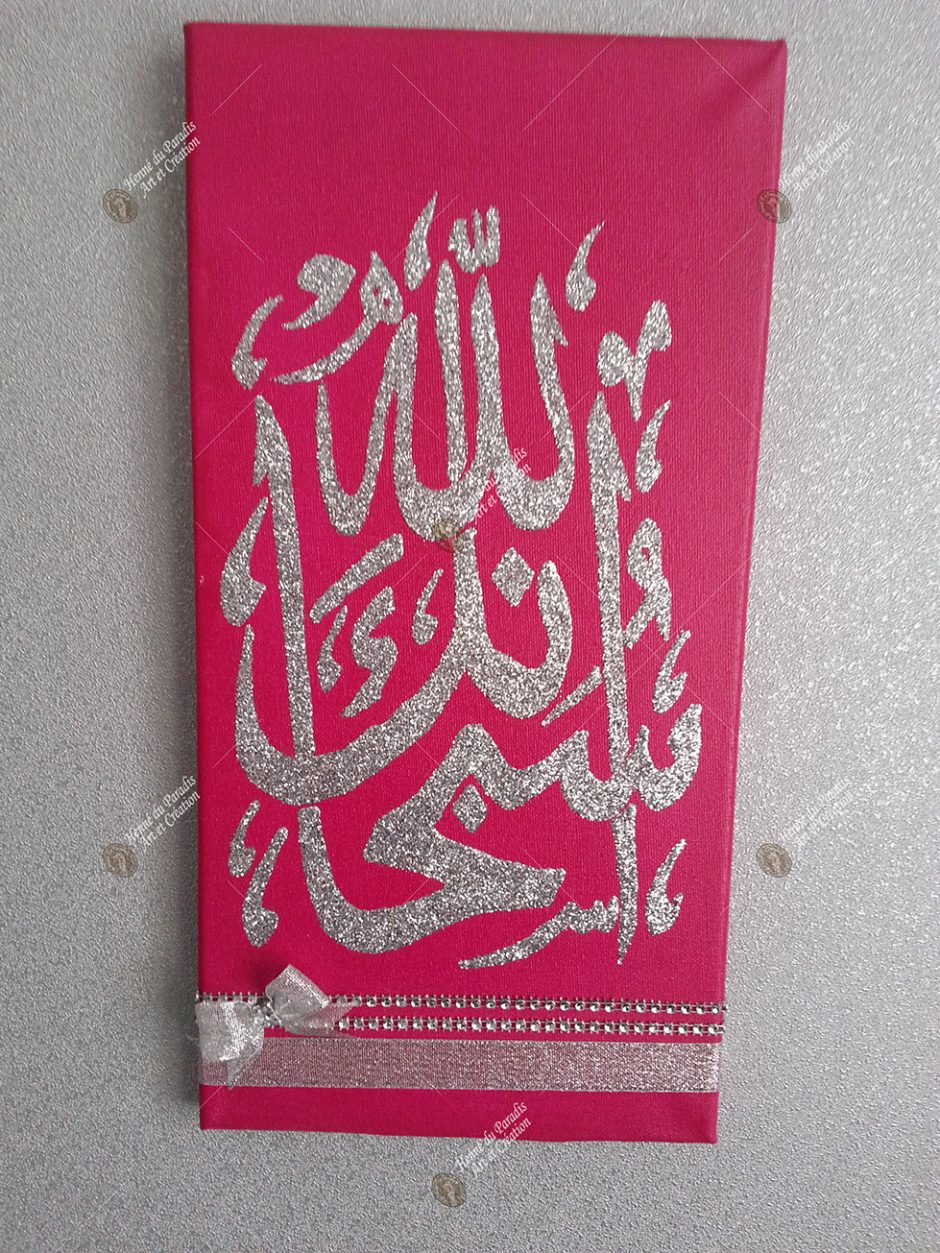 Henné du Paradis
Art et Création
Henné du Paradis
Art et Création
سبحان الله
Henné du Paradis
Art et Création
Henné du Paradis
Art et Création
Henné du Paradis
Art et Création
Henné du Paradis
Art et Création